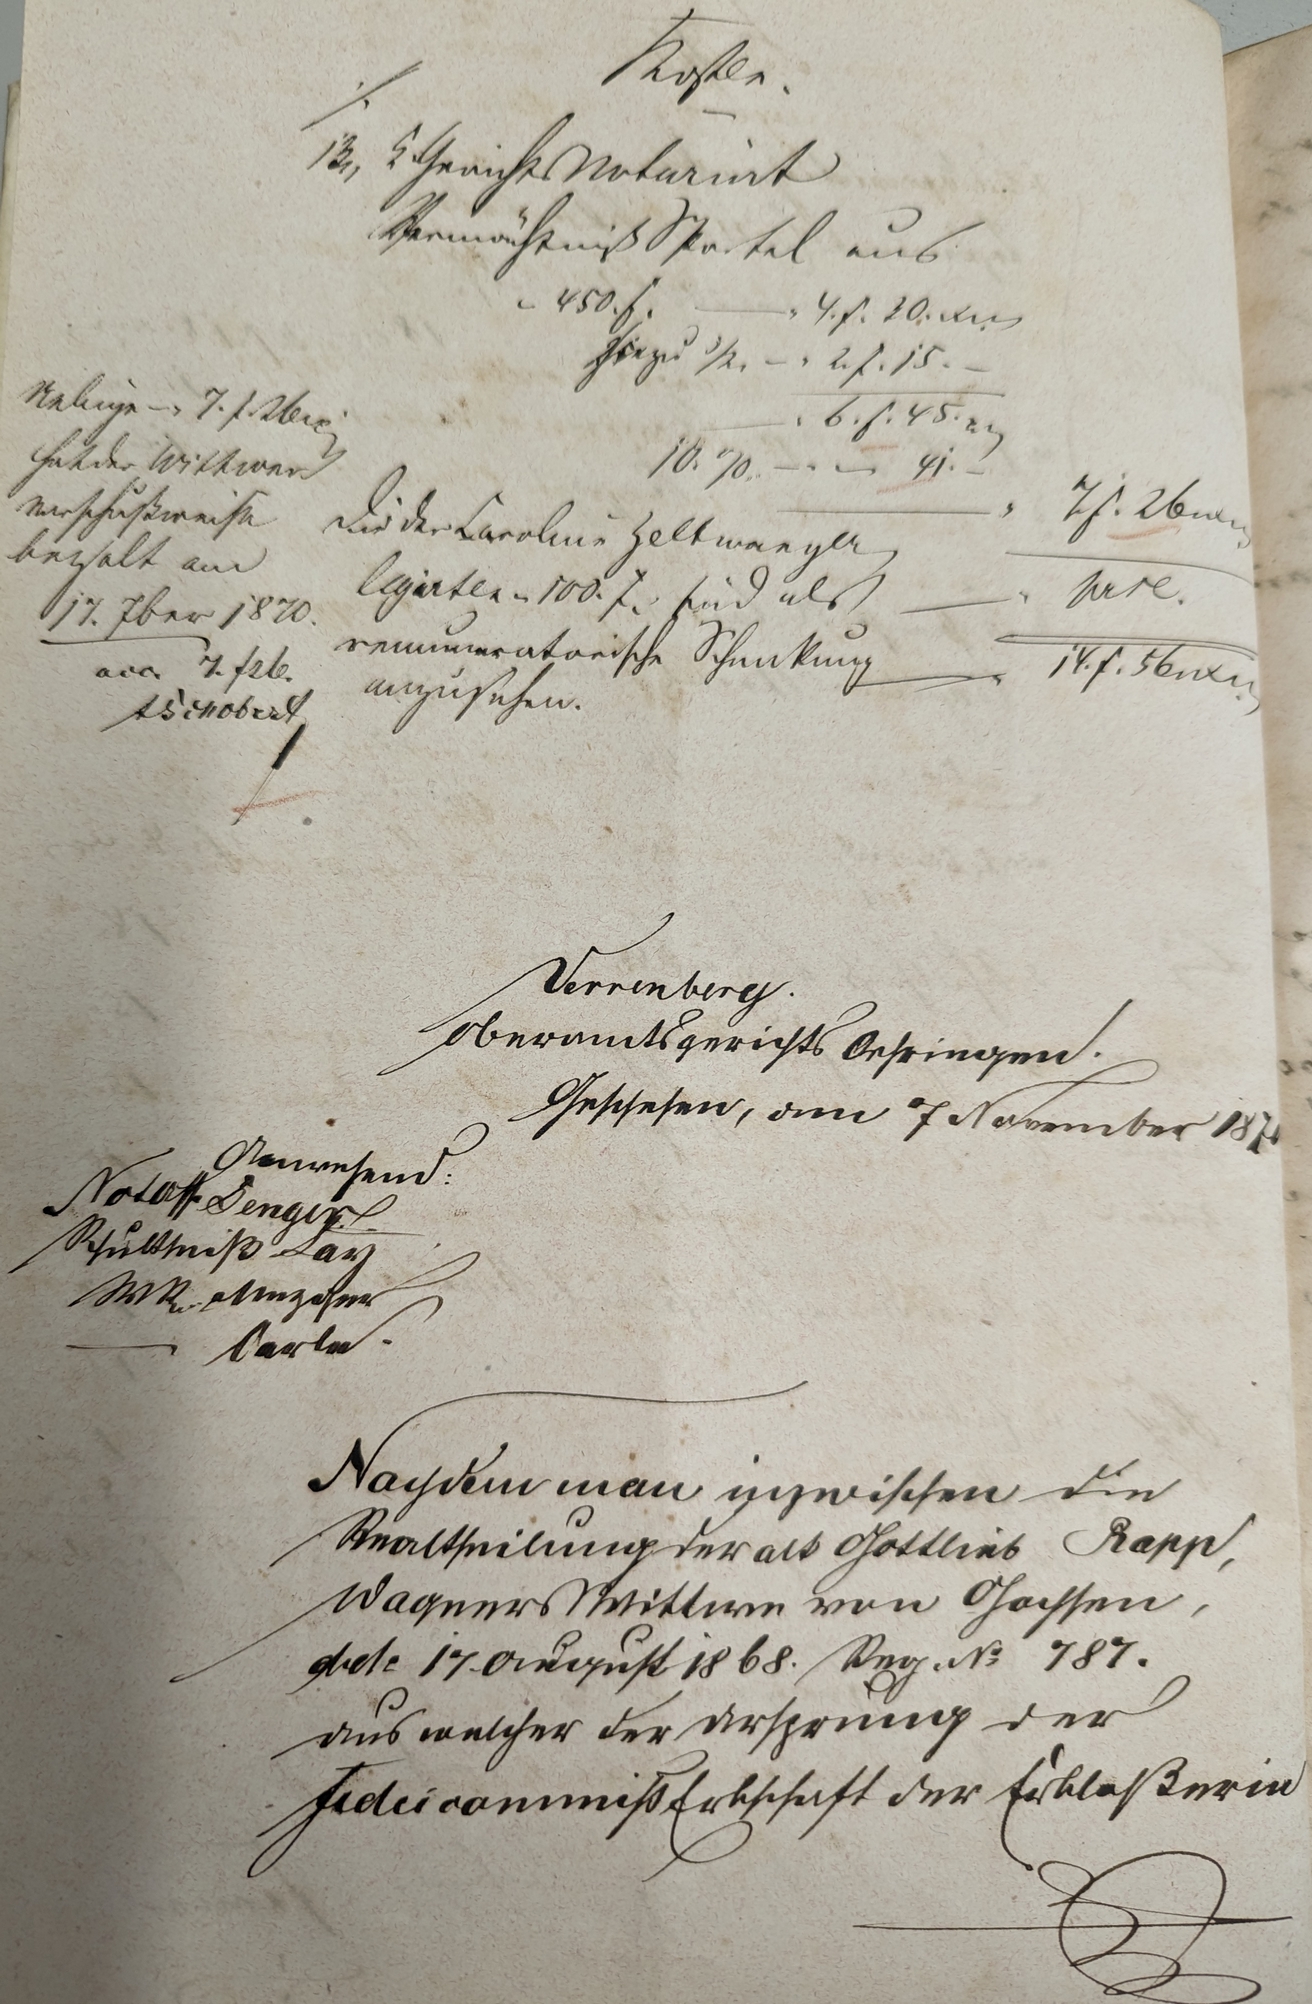 Kosten.
K. Gerichts Notariat
Vermächtniß Sportel aus
450. f. — 4. f. 30. xr
Hiezu 1/2. — 2. f. 15. —
6. f. 45. xr
10. % — 41. —
7 f. 26 xr
Die der Caroline Zeltwanger
legirten 100. f. sind als
remuneratorische Schenkung
anzusehen.
14. f. 56 xr
Obige 7. f. 26 xr
hat der Wittwer
vorschußweise
bezahlt am
17. 7ber 1870.
7. f 26.
Verrenberg.
Oberamtsgerichts Oehringen.
Geschehen, am 7 November 187
Anwesend:
Schultheiß Lay
Nachdem man inzwischen die
Realtheilung der alt Gottlieb Rapp,
Wagners Wittwe von Gochsen,
dde 17. August 1868. Reg. No 787.
aus welcher der Ursprung der
Fideicommiß Erbschaft der Erblaßerin